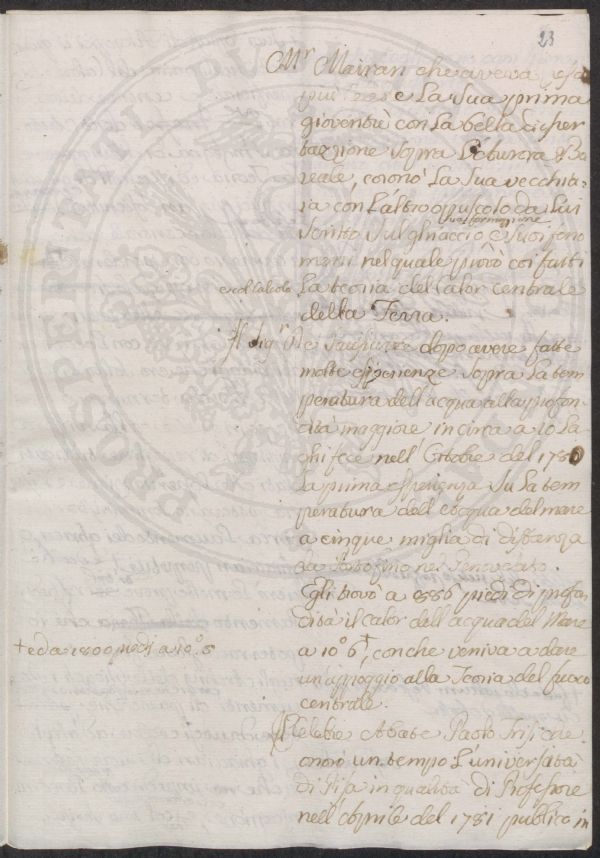 23
Mr. Mairan che aveva resa
più la Sua prima
gioventù con la bella disser
tazzione sopra l'Aurora Bo
reale, coronò la Sua vecchia
ia con l'altro opuscolo da Lui
Scritto Sul ghiaccio e Suoi feno
meni nel quale provò coi fatti
e col calcolo
la teoria del Calor centrale
della Terra.
Il Sigr. De Saussure dopo avere fatte
molte esperienze sopra la tem
peratura dell'acqua alla profon
dità maggiore in circa a 10 la
ghi fece nell'Ottobre del 1780
la prima esperienza Su la tem
peratura dell'acqua del mare
a cinque miglia di distanza
da Portofino nel Genovesato.
Egli trovò a 886 piedi di profon
dità il calor dell'acqua del Mare
a 10° 6†, con che veniva a dare
† ed a 1800 piedi a 10° 6
un'appoggio alla Teoria del fuoco
centrale.
Il Celebre Abate Paolo Frisi che
onorò un tempo l'Università
di Pisa in qualità di Professore
nell'Aprile del 1781 publicò in